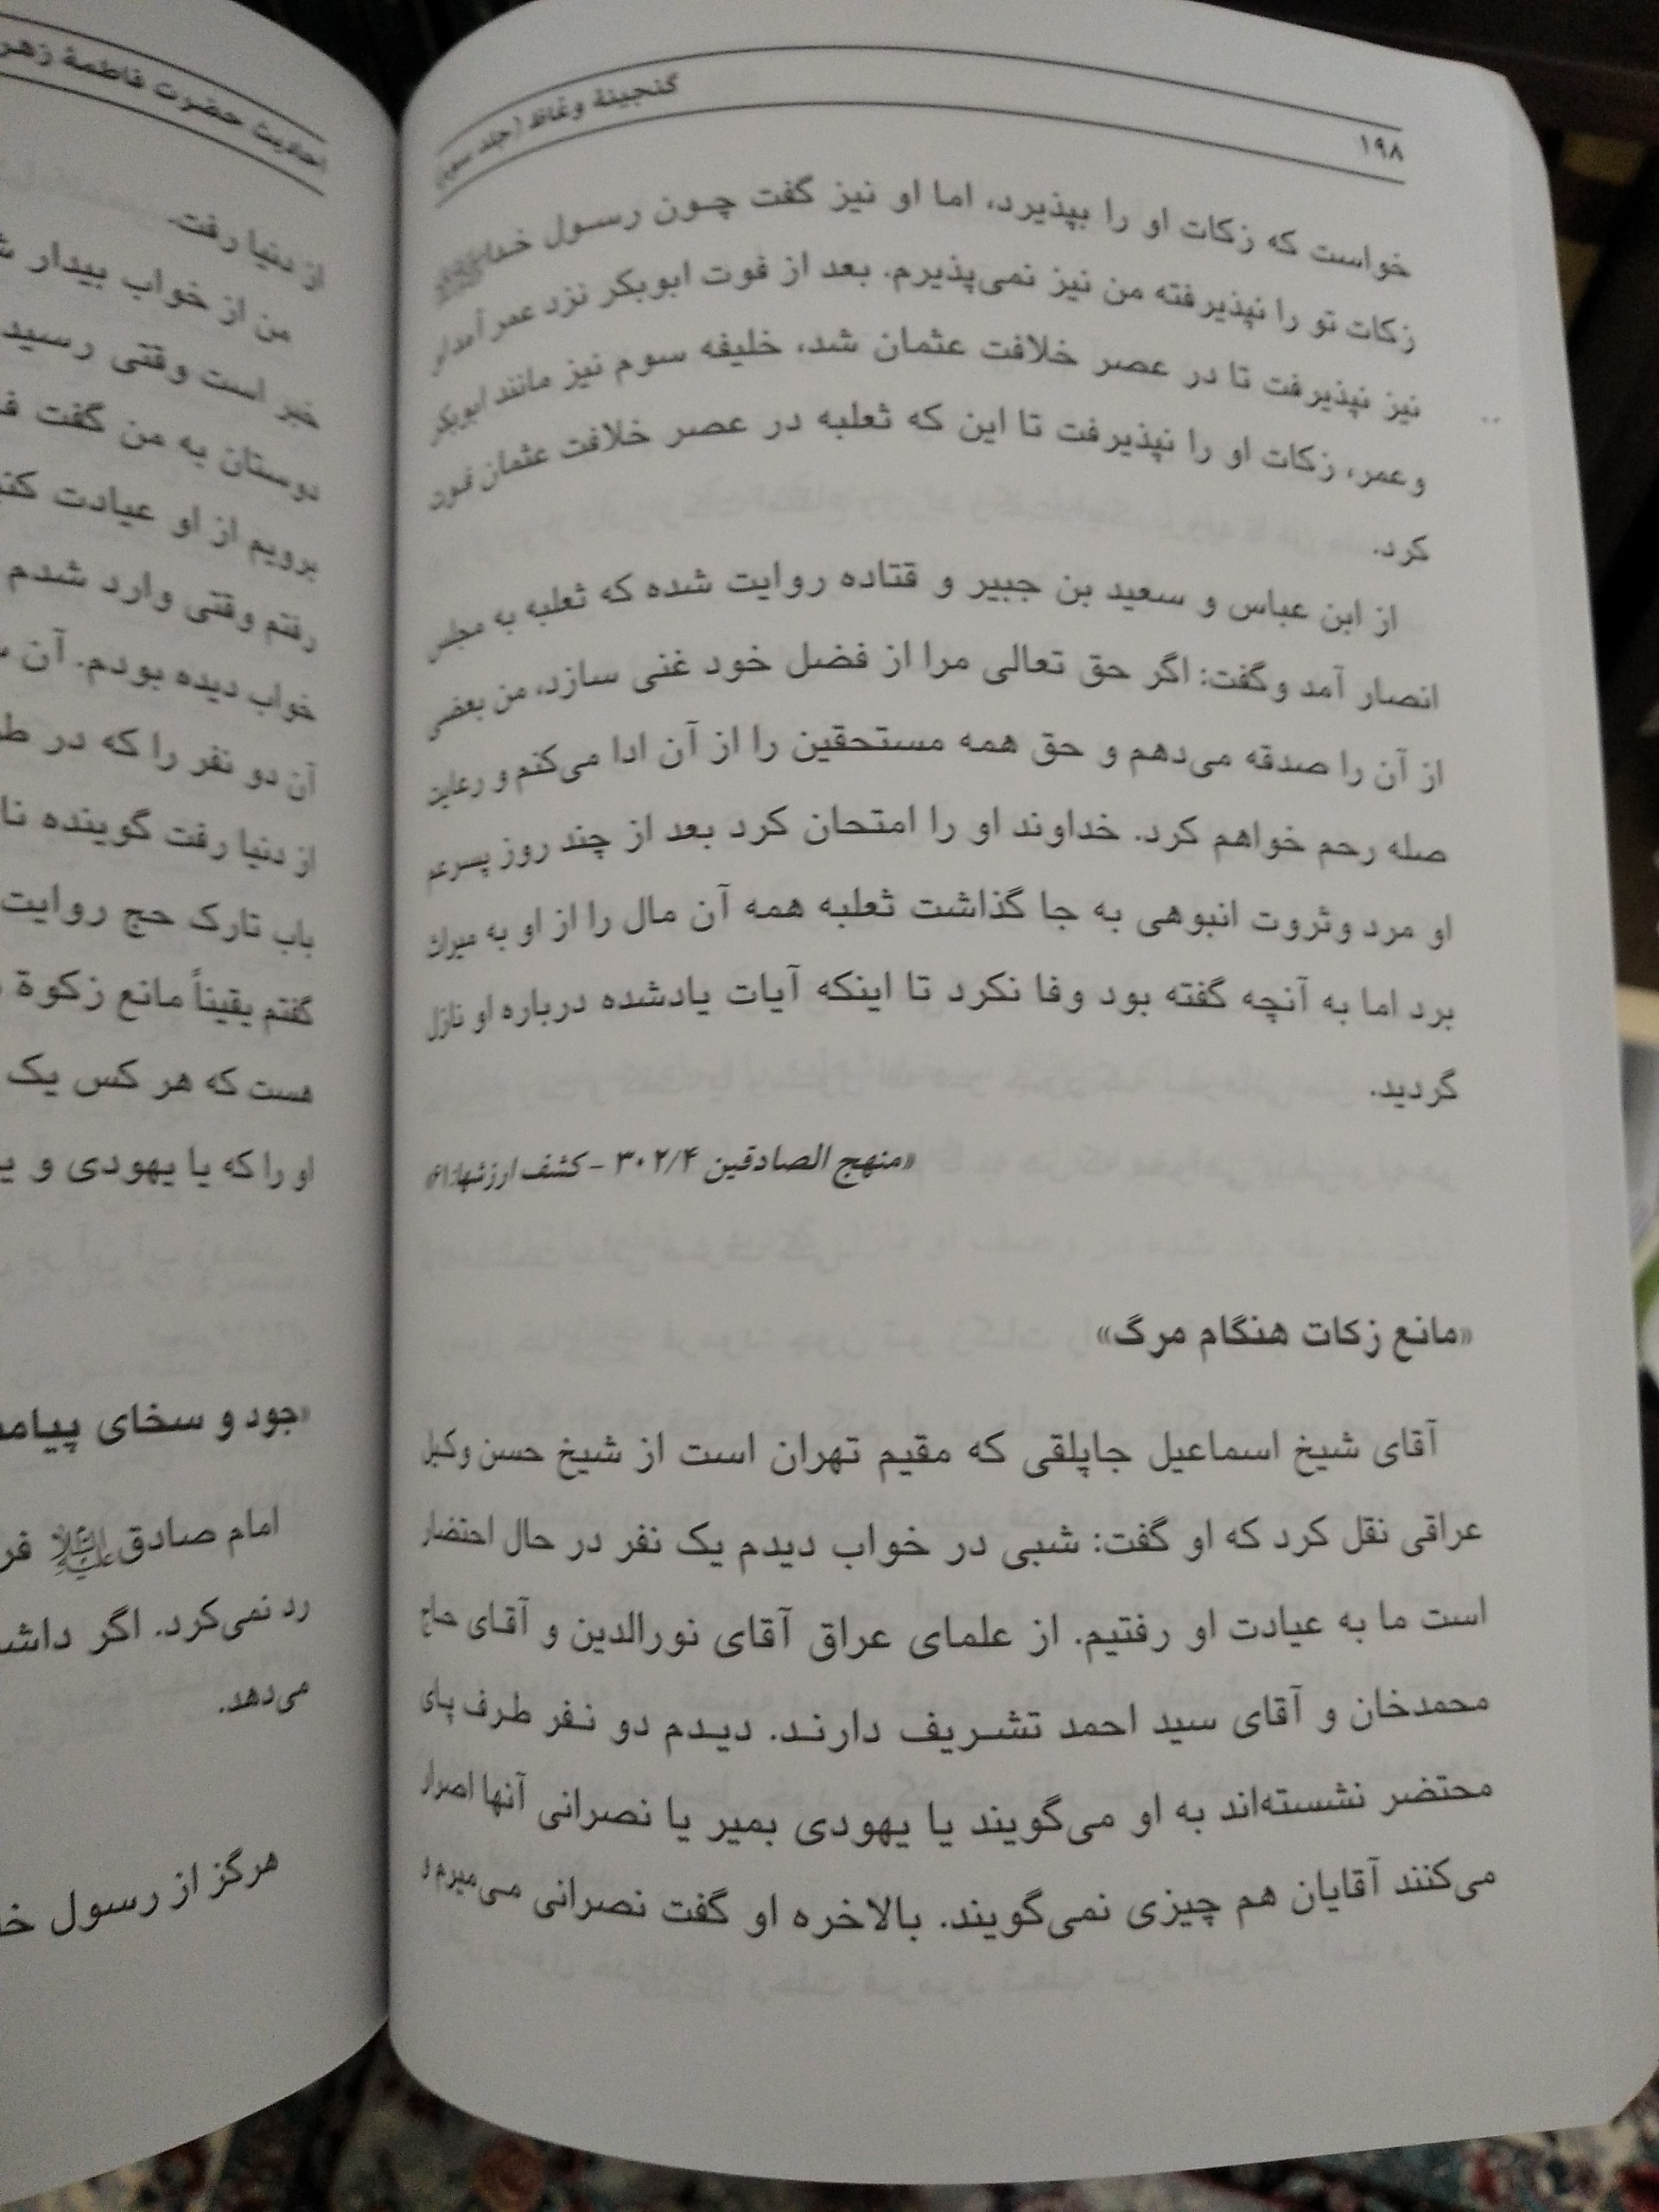 ۱۹۸
گنجینهٔ وعّاظ (جلد سوم)
خواست که زکات او را بپذیرد، اما او نیز گفت چون رسول خداﷺ
زکات تو را نپذیرفته من نیز نمی‌پذیرم. بعد از فوت ابوبکر نزد عمر آمد او
نیز نپذیرفت تا در عصر خلافت عثمان شد، خلیفه سوم نیز مانند ابوبکر
و عمر، زکات او را نپذیرفت تا این که ثعلبه در عصر خلافت عثمان فوت
کرد.
از ابن عباس و سعید بن جبیر و قتاده روایت شده که ثعلبه به مجلس
انصار آمد و گفت: اگر حق تعالی مرا از فضل خود غنی سازد، من بعضی
از آن را صدقه می‌دهم و حق همه مستحقین را از آن ادا می‌کنم و رعایت
صله رحم خواهم کرد. خداوند او را امتحان کرد بعد از چند روز پسرعم
او مرد و ثروت انبوهی به جا گذاشت ثعلبه همه آن مال را از او به میراث
برد اما به آنچه گفته بود وفا نکرد تا اینکه آیات یادشده درباره او نازل
گردید.
«منهج الصادقین ۳۰۲/۴ - کشف ارزشها:
«مانع زکات هنگام مرگ»
آقای شیخ اسماعیل جاپلقی که مقیم تهران است از شیخ حسن وکیل
عراقی نقل کرد که او گفت: شبی در خواب دیدم یک نفر در حال احتضار
است ما به عیادت او رفتیم. از علمای عراق آقای نورالدین و آقای حاج
محمدخان و آقای سید احمد تشریف دارند. دیدم دو نفر طرف پای
محتضر نشسته‌اند به او می‌گویند یا یهودی بمیر یا نصرانی آنها اصرار
می‌کنند آقایان هم چیزی نمی‌گویند. بالاخره او گفت نصرانی می‌میرم و
احادیث حضرت فاطمهٔ
از دنیا رفت.
من از خواب بیدار
خبر است وقتی رسید
دوستان به من گفت
برویم از او عیادت
رفتم وقتی وارد شدم
خواب دیده بودم. آن
آن دو نفر را که در
از دنیا رفت گوینده
باب تارک حج روایت
گفتم یقیناً مانع زکوة
هست که هر کس یک
او را که یا یهودی و
«جود و سخای
امام صادق علیه‌السلام
رد نمی‌کرد. اگر
می‌دهد.
هرگز از رسول